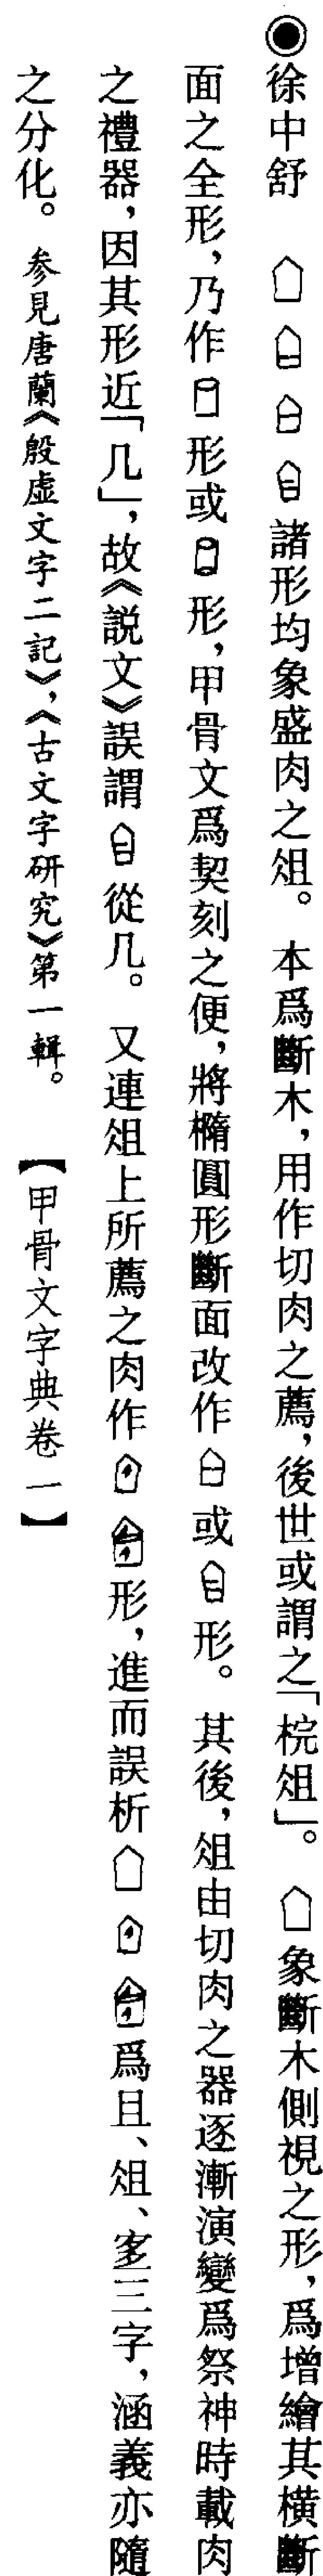 ◉徐中舒　諸形均象盛肉之俎。本爲斷木，用作切肉之薦，後世或謂之「梡俎」。象斷木側視之形，爲增繪其橫斷
面之全形，乃作形或形，甲骨文爲契刻之便，將橢圓形斷面改作或形。其後，俎由切肉之器逐漸演變爲祭神時載肉
之禮器，因其形近「几」，故《説文》誤謂從几。又連俎上所薦之肉作形，進而誤析爲且、俎、宜三字，涵義亦隨
之分化。參見唐蘭《殷虛文字二記》，《古文字研究》第一輯。【甲骨文字典卷一】